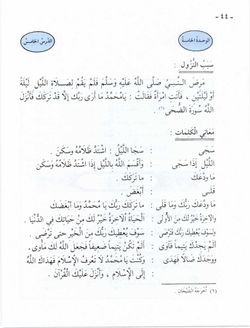 - 11 -
الوحدة الخامسة
الدرس الخامس
سَبَبُ النُّزُولِ :
مَرِضَ النَّبِيُّ صَلَّى اللَّهُ عَلَيْهِ وَسَلَّمَ فَلَمْ يَقُمْ لِصَلَاةِ اللَّيْلِ لَيْلَةً
أَوْ لَيْلَتَيْنِ ، فَأَتَتِ امْرَأَةٌ فَقَالَتْ : يَا مُحَمَّدُ مَا أَرَى رَبَّكَ إِلَّا قَدْ تَرَكَكَ فَأَنْزَلَ
اللَّهُ سُورَةَ الضُّحَى (١)
مَعَانِي الْكَلِمَاتِ :
سَجَى : سَجَا اللَّيْلُ : اشْتَدَّ ظَلَامُهُ وَسَكَنَ .
وَاللَّيْلِ إِذَا سَجَى : وَأُقْسِمُ اللَّهُ بِاللَّيْلِ إِذَا اشْتَدَّ ظَلَامُهُ وَسَكَنَ
مَا وَدَّعَكَ : مَا تَرَكَكَ .
قَلَى : أَبْغَضَ .
مَا وَدَّعَكَ رَبُّكَ وَمَا قَلَى : مَا تَرَكَكَ رَبُّكَ يَا مُحَمَّدُ وَمَا أَبْغَضَكَ
وَلَلْآخِرَةُ خَيْرٌ لَكَ مِنَ الْأُولَى : الْحَيَاةُ الْآخِرَةُ خَيْرٌ لَكَ مِنْ حَيَاتِكَ فِي الدُّنْيَا .
وَلَسَوْفَ يُعْطِيكَ رَبُّكَ فَتَرْضَى : سَوْفَ يُعْطِيكَ رَبُّكَ مِنَ الْخَيْرِ حَتَّى تَرْضَى .
أَلَمْ يَجِدْكَ يَتِيمًا فَآوَى : أَلَمْ تَكُنْ يَتِيمًا ضَعِيفًا فَجَعَلَ اللَّهُ لَكَ مَأْوَى .
وَوَجَدَكَ ضَالًّا فَهَدَى : وَكُنْتَ يَا مُحَمَّدُ لَا تَعْرِفُ الْإِسْلَامَ فَهَدَاكَ اللَّهُ
إِلَى الْإِسْلَامِ ، وَأَنْزَلَ عَلَيْكَ الْقُرْآنَ .
(١) أَخْرَجَهُ الشَّيْخَانِ .